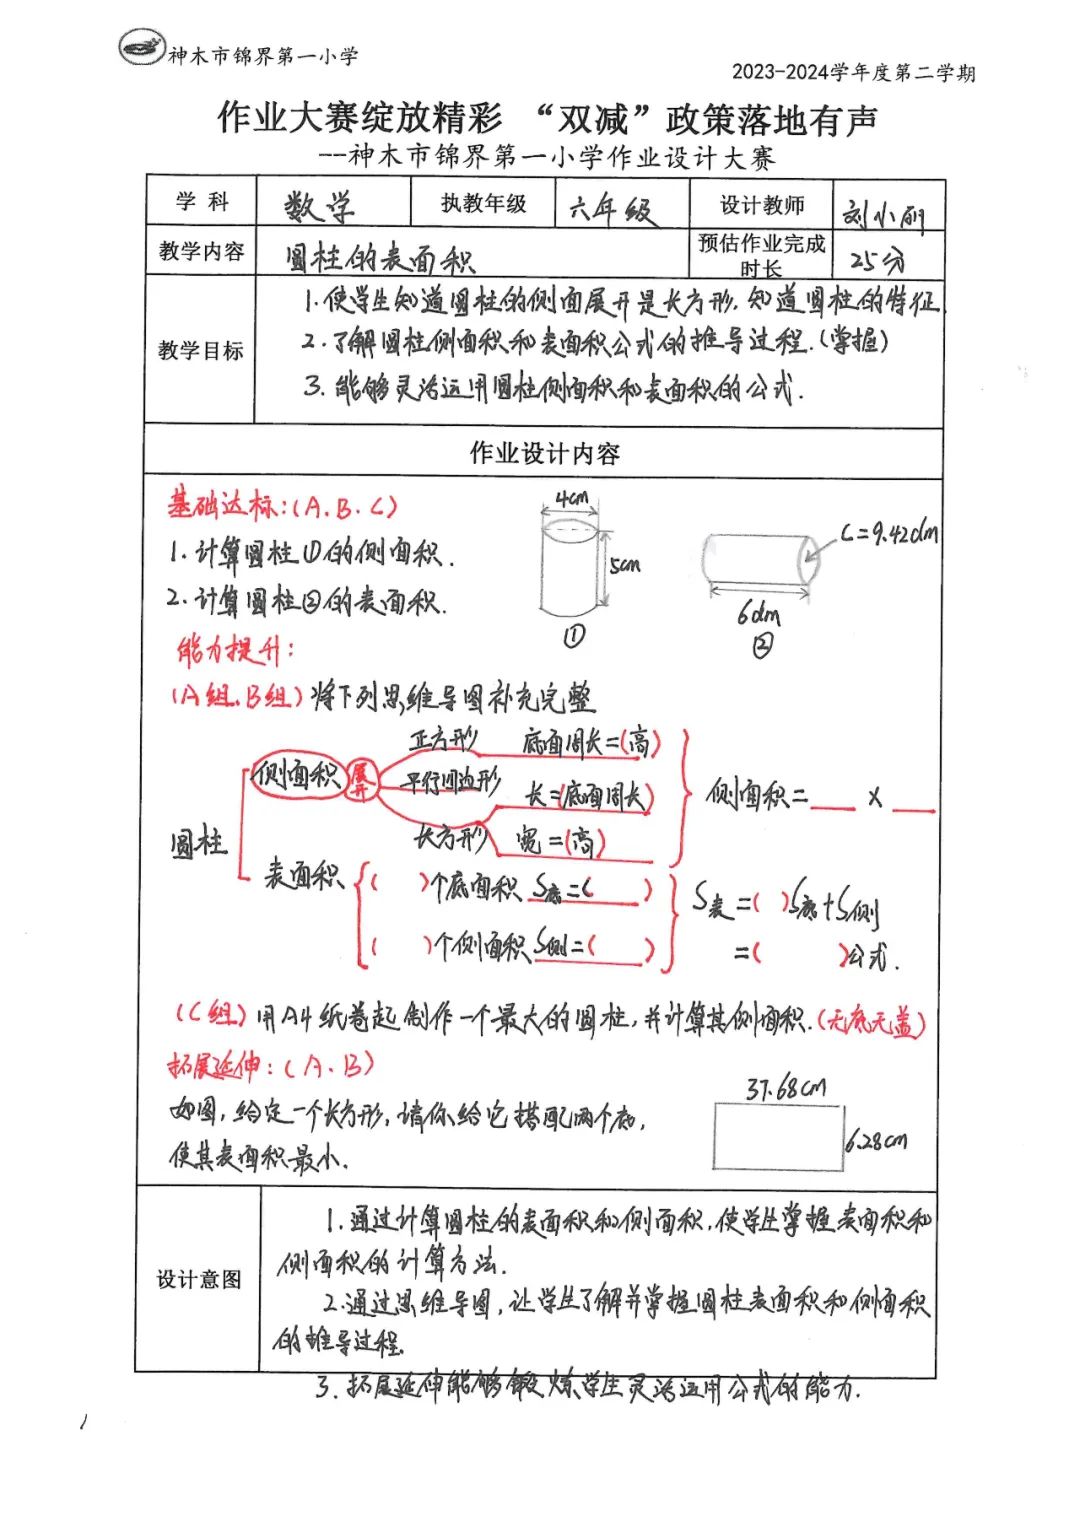 神木市锦界第一小学
2023-2024学年度第二学期
作业大赛绽放精彩 “双减”政策落地有声
--神木市锦界第一小学作业设计大赛
学 科 数学 执教年级 六年级 设计教师 刘小丽
教学内容 圆柱的表面积 预估作业完成时长 25分
教学目标
1.使学生知道圆柱的侧面展开是长方形.知道圆柱的特征.
2.了解圆柱侧面积和表面积公式的推导过程.(掌握)
3.能够灵活运用圆柱侧面积和表面积的公式.
作业设计内容
基础达标:(A.B.C)
1.计算圆柱①的侧面积.
2.计算圆柱②的表面积.
4cm
5cm
①
C=9.42dm
6dm
②
能力提升:
(A组.B组)将下列思维导图补充完整
圆柱
侧面积 展开
正方形 底面周长=(高)
平行四边形
长=(底面周长)
长方形 宽=(高)
侧面积=___ × ___
表面积
( )个底面积 S底=( )
( )个侧面积 S侧=( )
S表=( )S底+S侧
=( )公式.
(C组)用A4纸卷起制作一个最大的圆柱,并计算其侧面积.(无底无盖)
拓展延伸:(A.B)
如图,给定一个长方形,请你给它搭配两个底,
使其表面积最小.
37.68cm
6.28cm
设计意图
1.通过计算圆柱的表面积和侧面积,使学生掌握表面积和
侧面积的计算方法.
2.通过思维导图,让学生了解并掌握圆柱表面积和侧面积
的推导过程.
3.拓展延伸能够锻炼学生灵活运用公式的能力.
1